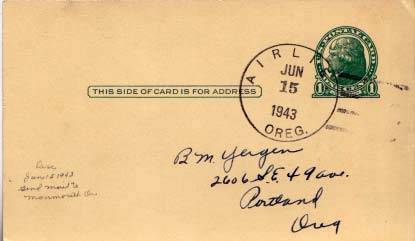 U.S. POSTAL CARD
1 1
THIS SIDE OF CARD IS FOR ADDRESS
AIRLIE
JUN
15
1943
OREG.
B.M. Yergen
2606 S.E. 49 ave.
Portland
Oreg
June 15 1943
Send mail to
Monmouth Ore